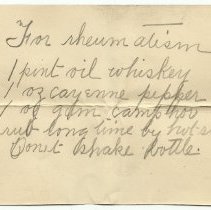 For rheumatism
1 pint oil whiskey
1 oz cayenne pepper
1 oz gum camphor
rub long time by hot s
Don't shake bottle.